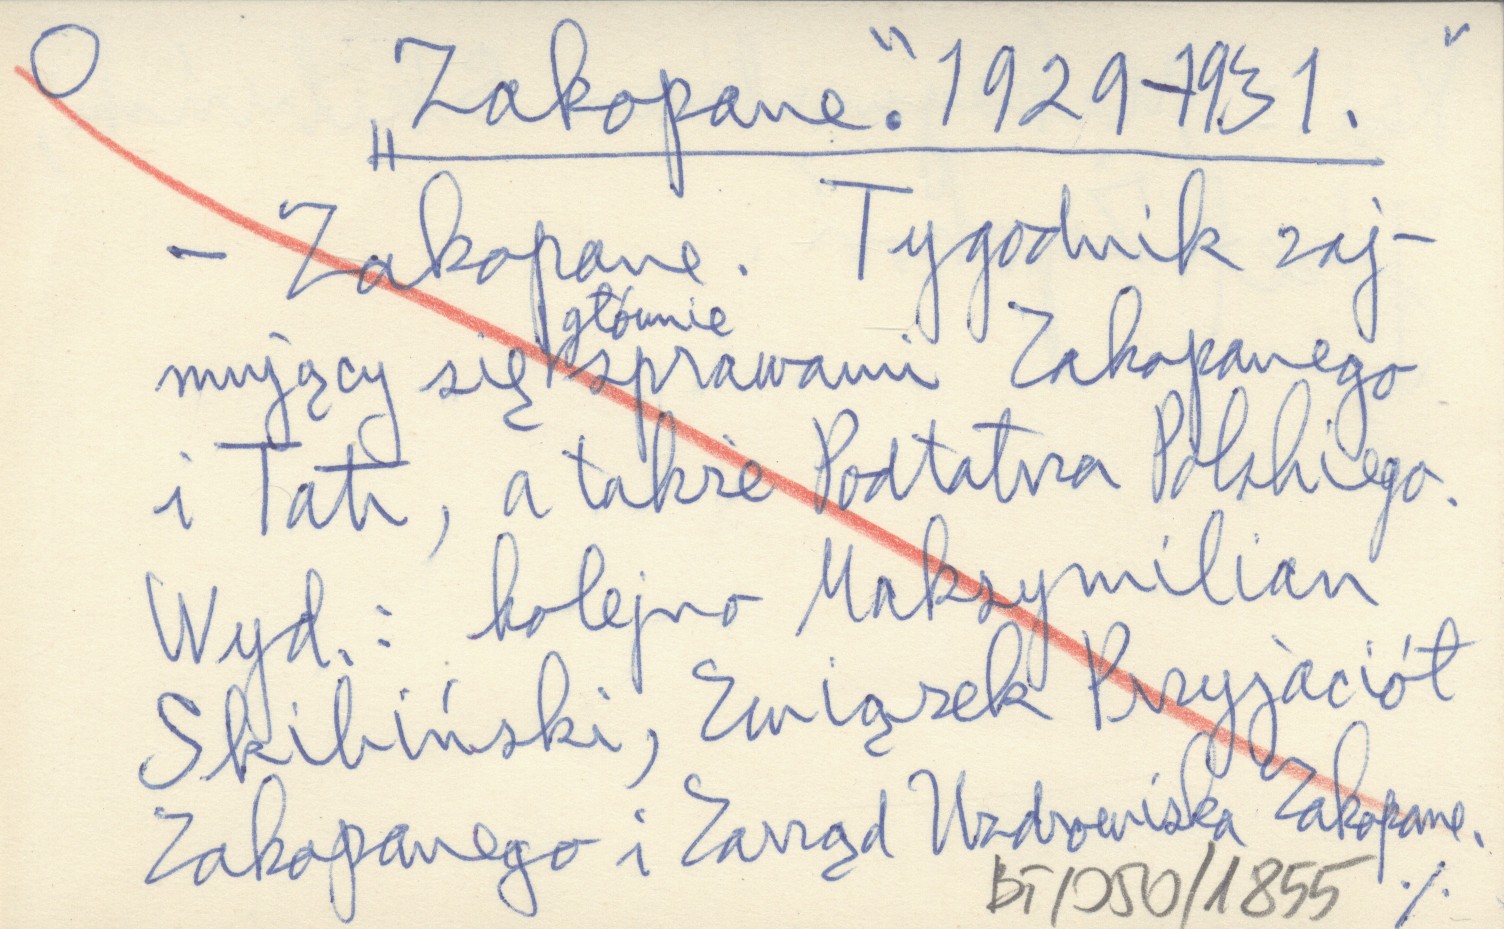 „Zakopane.“ 1929-1931. "
- Zakopane. Tygodnik zaj-
mujący się głównie sprawami Zakopanego
i Tatr, a także Podtatrza Polskiego.
Wyd.: kolejno Maksymilian
Skibiński, Związek Przyjaciół
Zakopanego i Zarząd Uzdrowiska Zakopane.
BT/OSO/1855 ./.